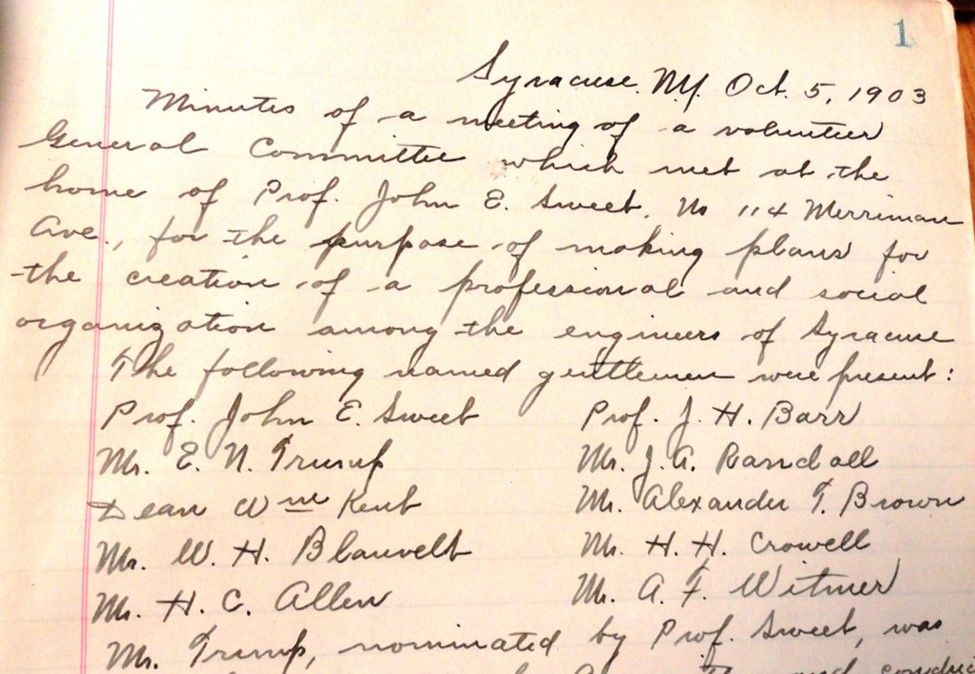 1
Syracuse, N.Y. Oct. 5, 1903
Minutes of a meeting of a volunteer
General Committee which met at the
home of Prof. John E. Sweet, No 114 Merriman
Ave., for the purpose of making plans for
the creation of a professional and social
organization among the engineers of Syracuse
The following named gentlemen were present:
Prof. John E. Sweet Prof. J. H. Barr
Mr. E. N. Trump Mr. J. A. Randall
Dean Wm Kent Mr. Alexander T. Brown
Mr. W. H. Blauvelt Mr. H. H. Crowell
Mr. H. C. Allen Mr. A. F. Witmer
Mr. Trump, nominated by Prof. Sweet, was